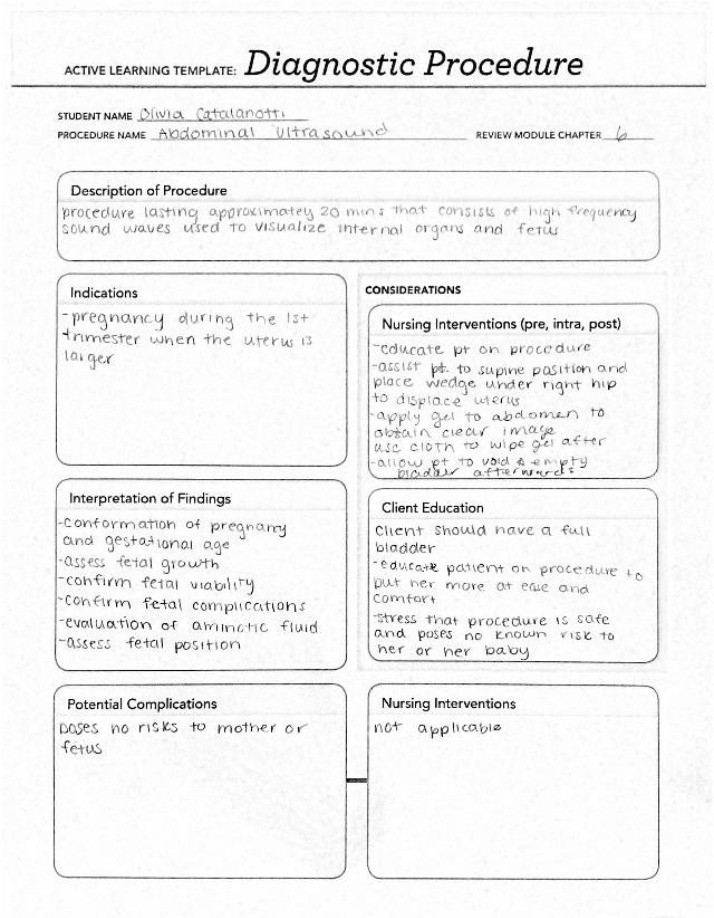 ACTIVE LEARNING TEMPLATE: Diagnostic Procedure
STUDENT NAME Olivia Catalanotti
PROCEDURE NAME Abdominal Ultrasound REVIEW MODULE CHAPTER 6
Description of Procedure
procedure lasting approximately 20 mins that consists of high frequency
sound waves used to visualize internal organs and fetus
Indications
-pregnancy during the 1st
trimester when the uterus is
larger
CONSIDERATIONS
Nursing Interventions (pre, intra, post)
-educate pt on procedure
-assist pt. to supine position and
place wedge under right hip
to displace uterus
-apply gel to abdomen to
obtain clear image
use cloth to wipe gel after
-allow pt to void & empty
bladder afterwards
Interpretation of Findings
-conformation of pregnancy
and gestational age
-assess fetal growth
-confirm fetal viability
-confirm fetal complications
-evaluation of aminotic fluid
-assess fetal position
Client Education
Client should have a full
bladder
-educate patient on procedure to
put her more at ease and
comfort
-stress that procedure is safe
and poses no known risk to
her or her baby
Potential Complications
poses no risks to mother or
fetus
Nursing Interventions
not applicable